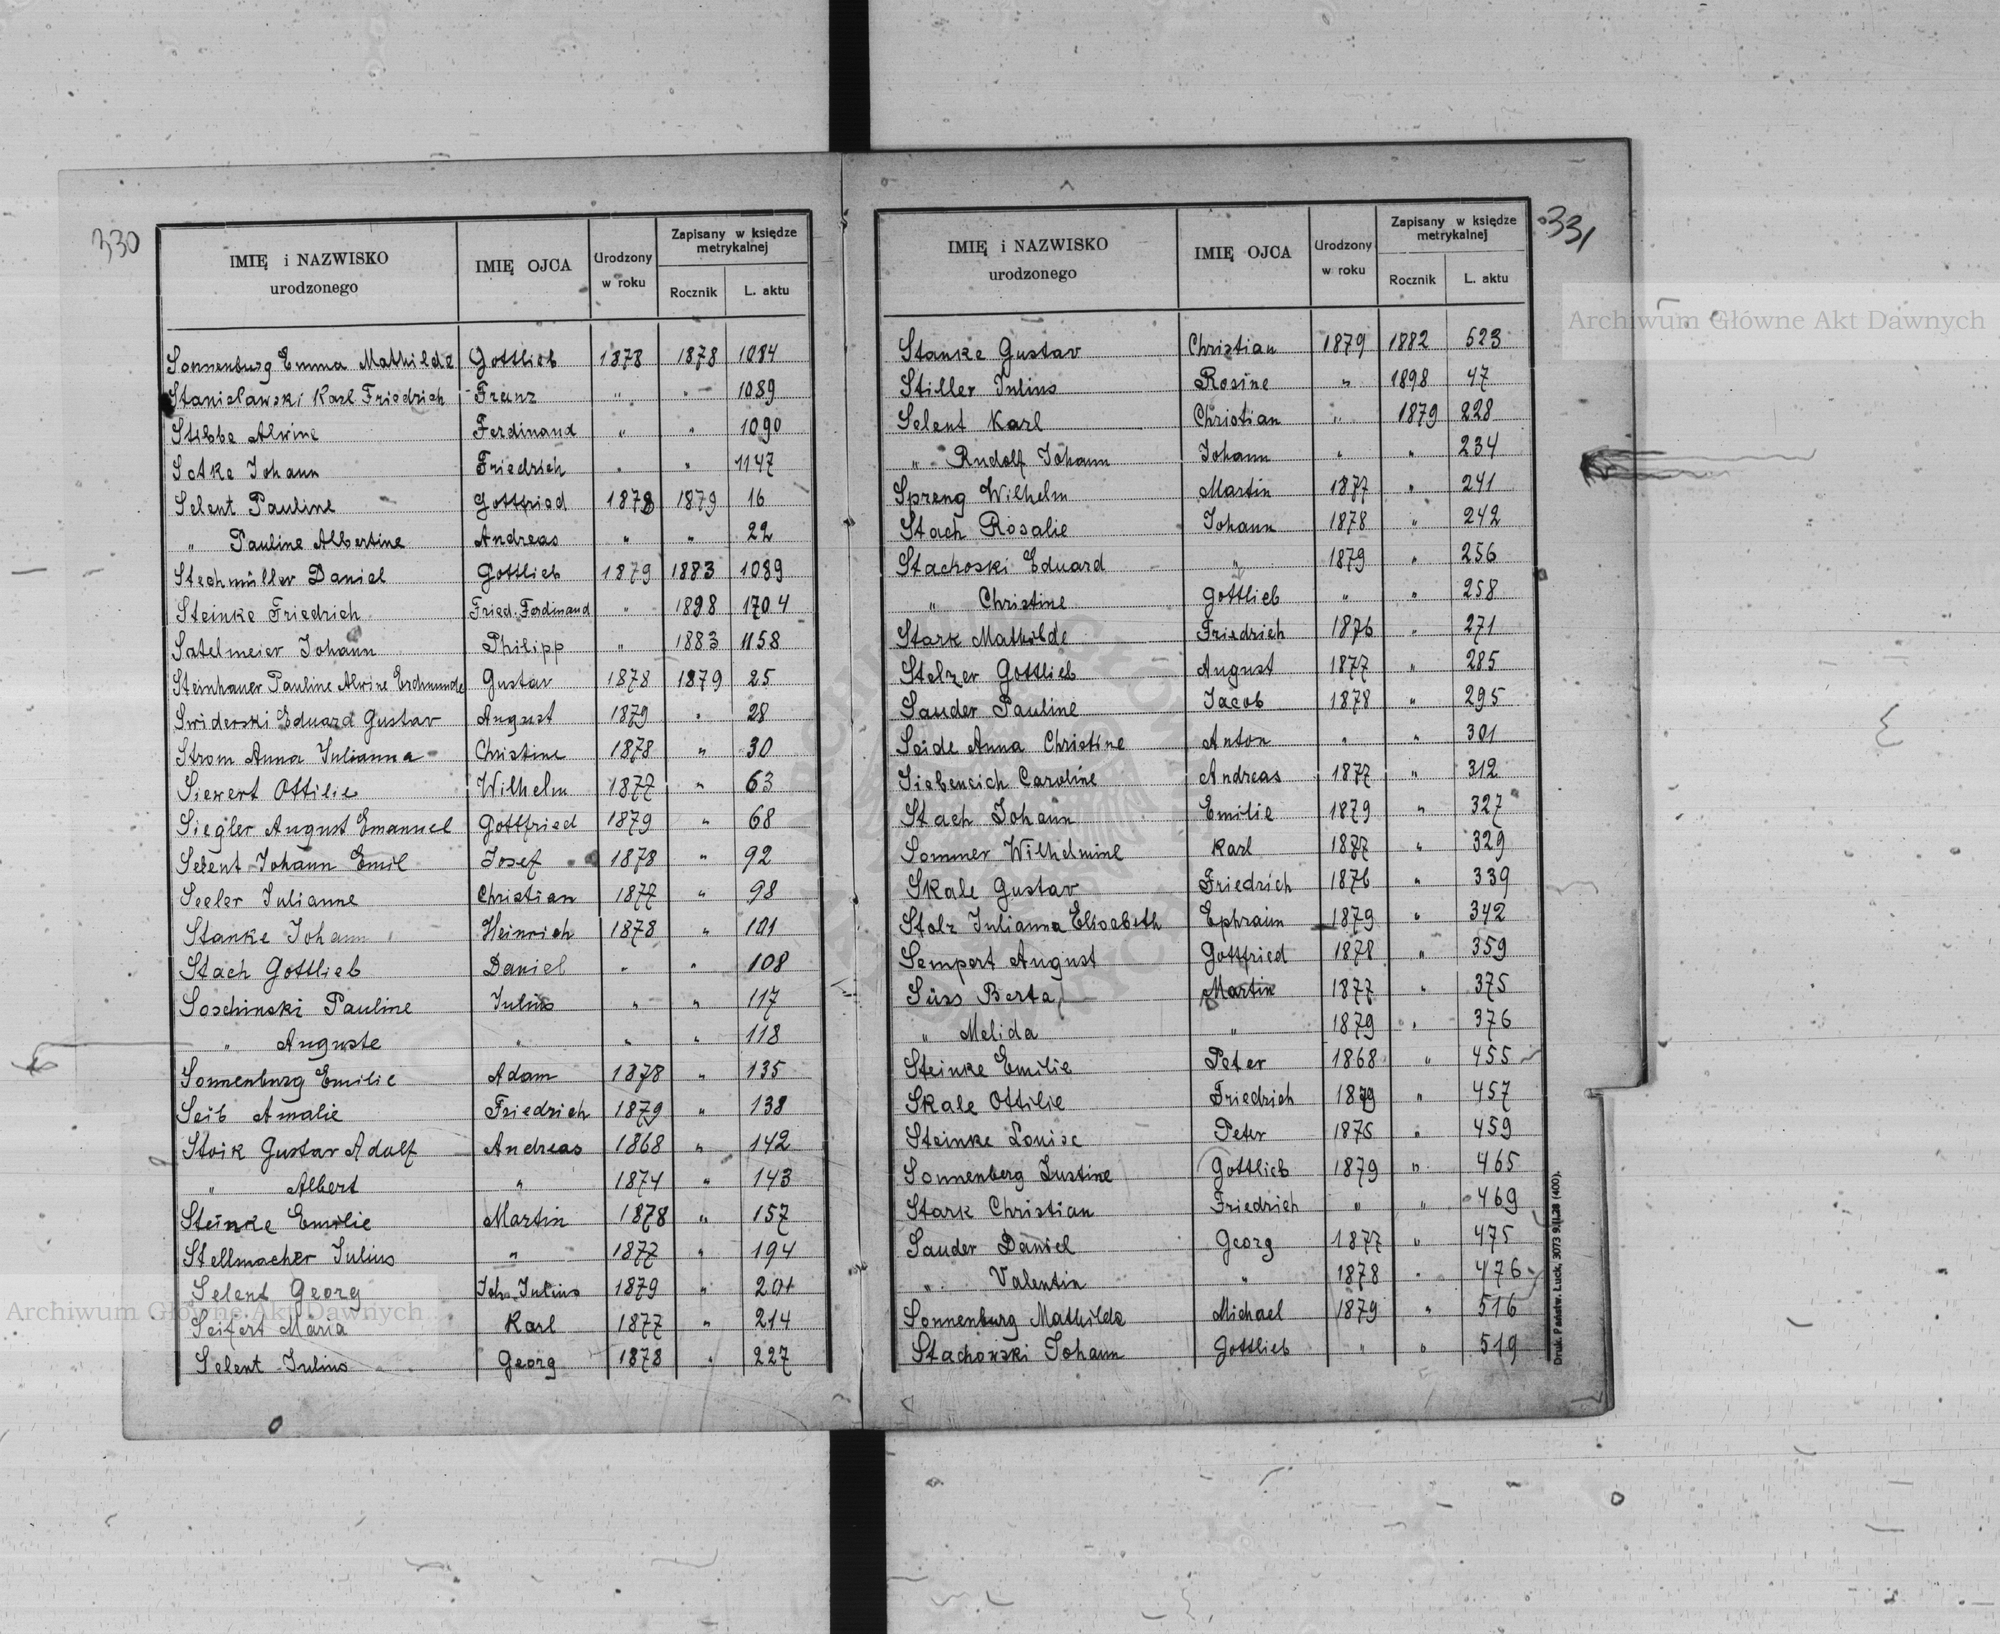 330
IMIĘ i NAZWISKO urodzonego IMIĘ OJCA Urodzony w roku Zapisany w księdze metrykalnej Rocznik L. aktu
Sonnenburg Emma Mathilde Gottlieb 1878 1878 1084
Stanisławski Karl Friedrich Franz " " 1089
Stibbe Alwine Ferdinand " " 1090
Sotke Johann Friedrich " " 1147
Selent Pauline Gottfried 1878 1879 16
" Pauline Albertine Andreas " " 22
Stechmüller Daniel Gottlieb 1879 1883 1089
Steinke Friedrich Fried. Ferdinand " 1898 1704
Satelmeier Johann Philipp " 1883 1158
Steinhauer Pauline Alwine Erdmunde Gustav 1878 1879 25
Swiderski Eduard Gustav August 1879 " 28
Strom Anna Julianna Christine 1878 " 30
Siewert Ottilie Wilhelm 1877 " 63
Siegler August Emanuel Gottfried 1879 " 68
Selent Johann Emil Josef 1878 " 92
Seeler Julianne Christian 1877 " 98
Stanke Johann Heinrich 1878 " 101
Stach Gottlieb Daniel " " 108
Soschinski Pauline Julius " " 117
" Auguste " " " 118
Sonnenburg Emilie Adam 1878 " 135
Seib Amalie Friedrich 1879 " 138
Stoik Gustav Adolf Andreas 1868 " 142
" Albert " 1874 " 143
Steinke Emilie Martin 1878 " 157
Stellmacher Julius " 1877 " 194
Selent Georg Joh. Julius 1879 " 201
Seifert Maria Karl 1877 " 214
Selent Julius Georg 1878 " 227
331
IMIĘ i NAZWISKO urodzonego IMIĘ OJCA Urodzony w roku Zapisany w księdze metrykalnej Rocznik L. aktu
Stanke Gustav Christian 1879 1882 523
Stiller Julius Rosine " 1898 47
Selent Karl Christian " 1879 228
" Rudolf Johann Johann " " 234
Spreng Wilhelm Martin 1877 " 241
Stach Rosalie Johann 1878 " 242
Stachoski Eduard " 1879 " 256
" Christine Gottlieb " " 258
Stark Mathilde Friedrich 1876 " 271
Stelzer Gottlieb August 1877 " 285
Sauder Pauline Jacob 1878 " 295
Seide Anna Christine Anton " " 301
Siebeneich Caroline Andreas 1877 " 312
Stach Johann Emilie 1879 " 327
Sommer Wilhelmine Karl 1877 " 329
Skale Gustav Friedrich 1876 " 339
Stolz Julianna Elisabeth Ephraim 1879 " 342
Sempert August Gottfried 1878 " 359
Süss Berta Martin 1877 " 375
" Melida " 1879 " 376
Steinke Emilie Peter 1868 " 455
Skale Ottilie Friedrich 1879 " 457
Steinke Louise Peter 1875 " 459
Sonnenberg Justine Gottlieb 1879 " 465
Stark Christian Friedrich " " 469
Sauder Daniel Georg 1877 " 475
" Valentin " 1878 " 476
Sonnenburg Mathilde Michael 1879 " 516
Stachowski Johann Gottlieb " " 519
Druk. Państw. Łuck, 3073 9.II.28 (400).
Archiwum Główne Akt Dawnych
Archiwum Główne Akt Dawnych